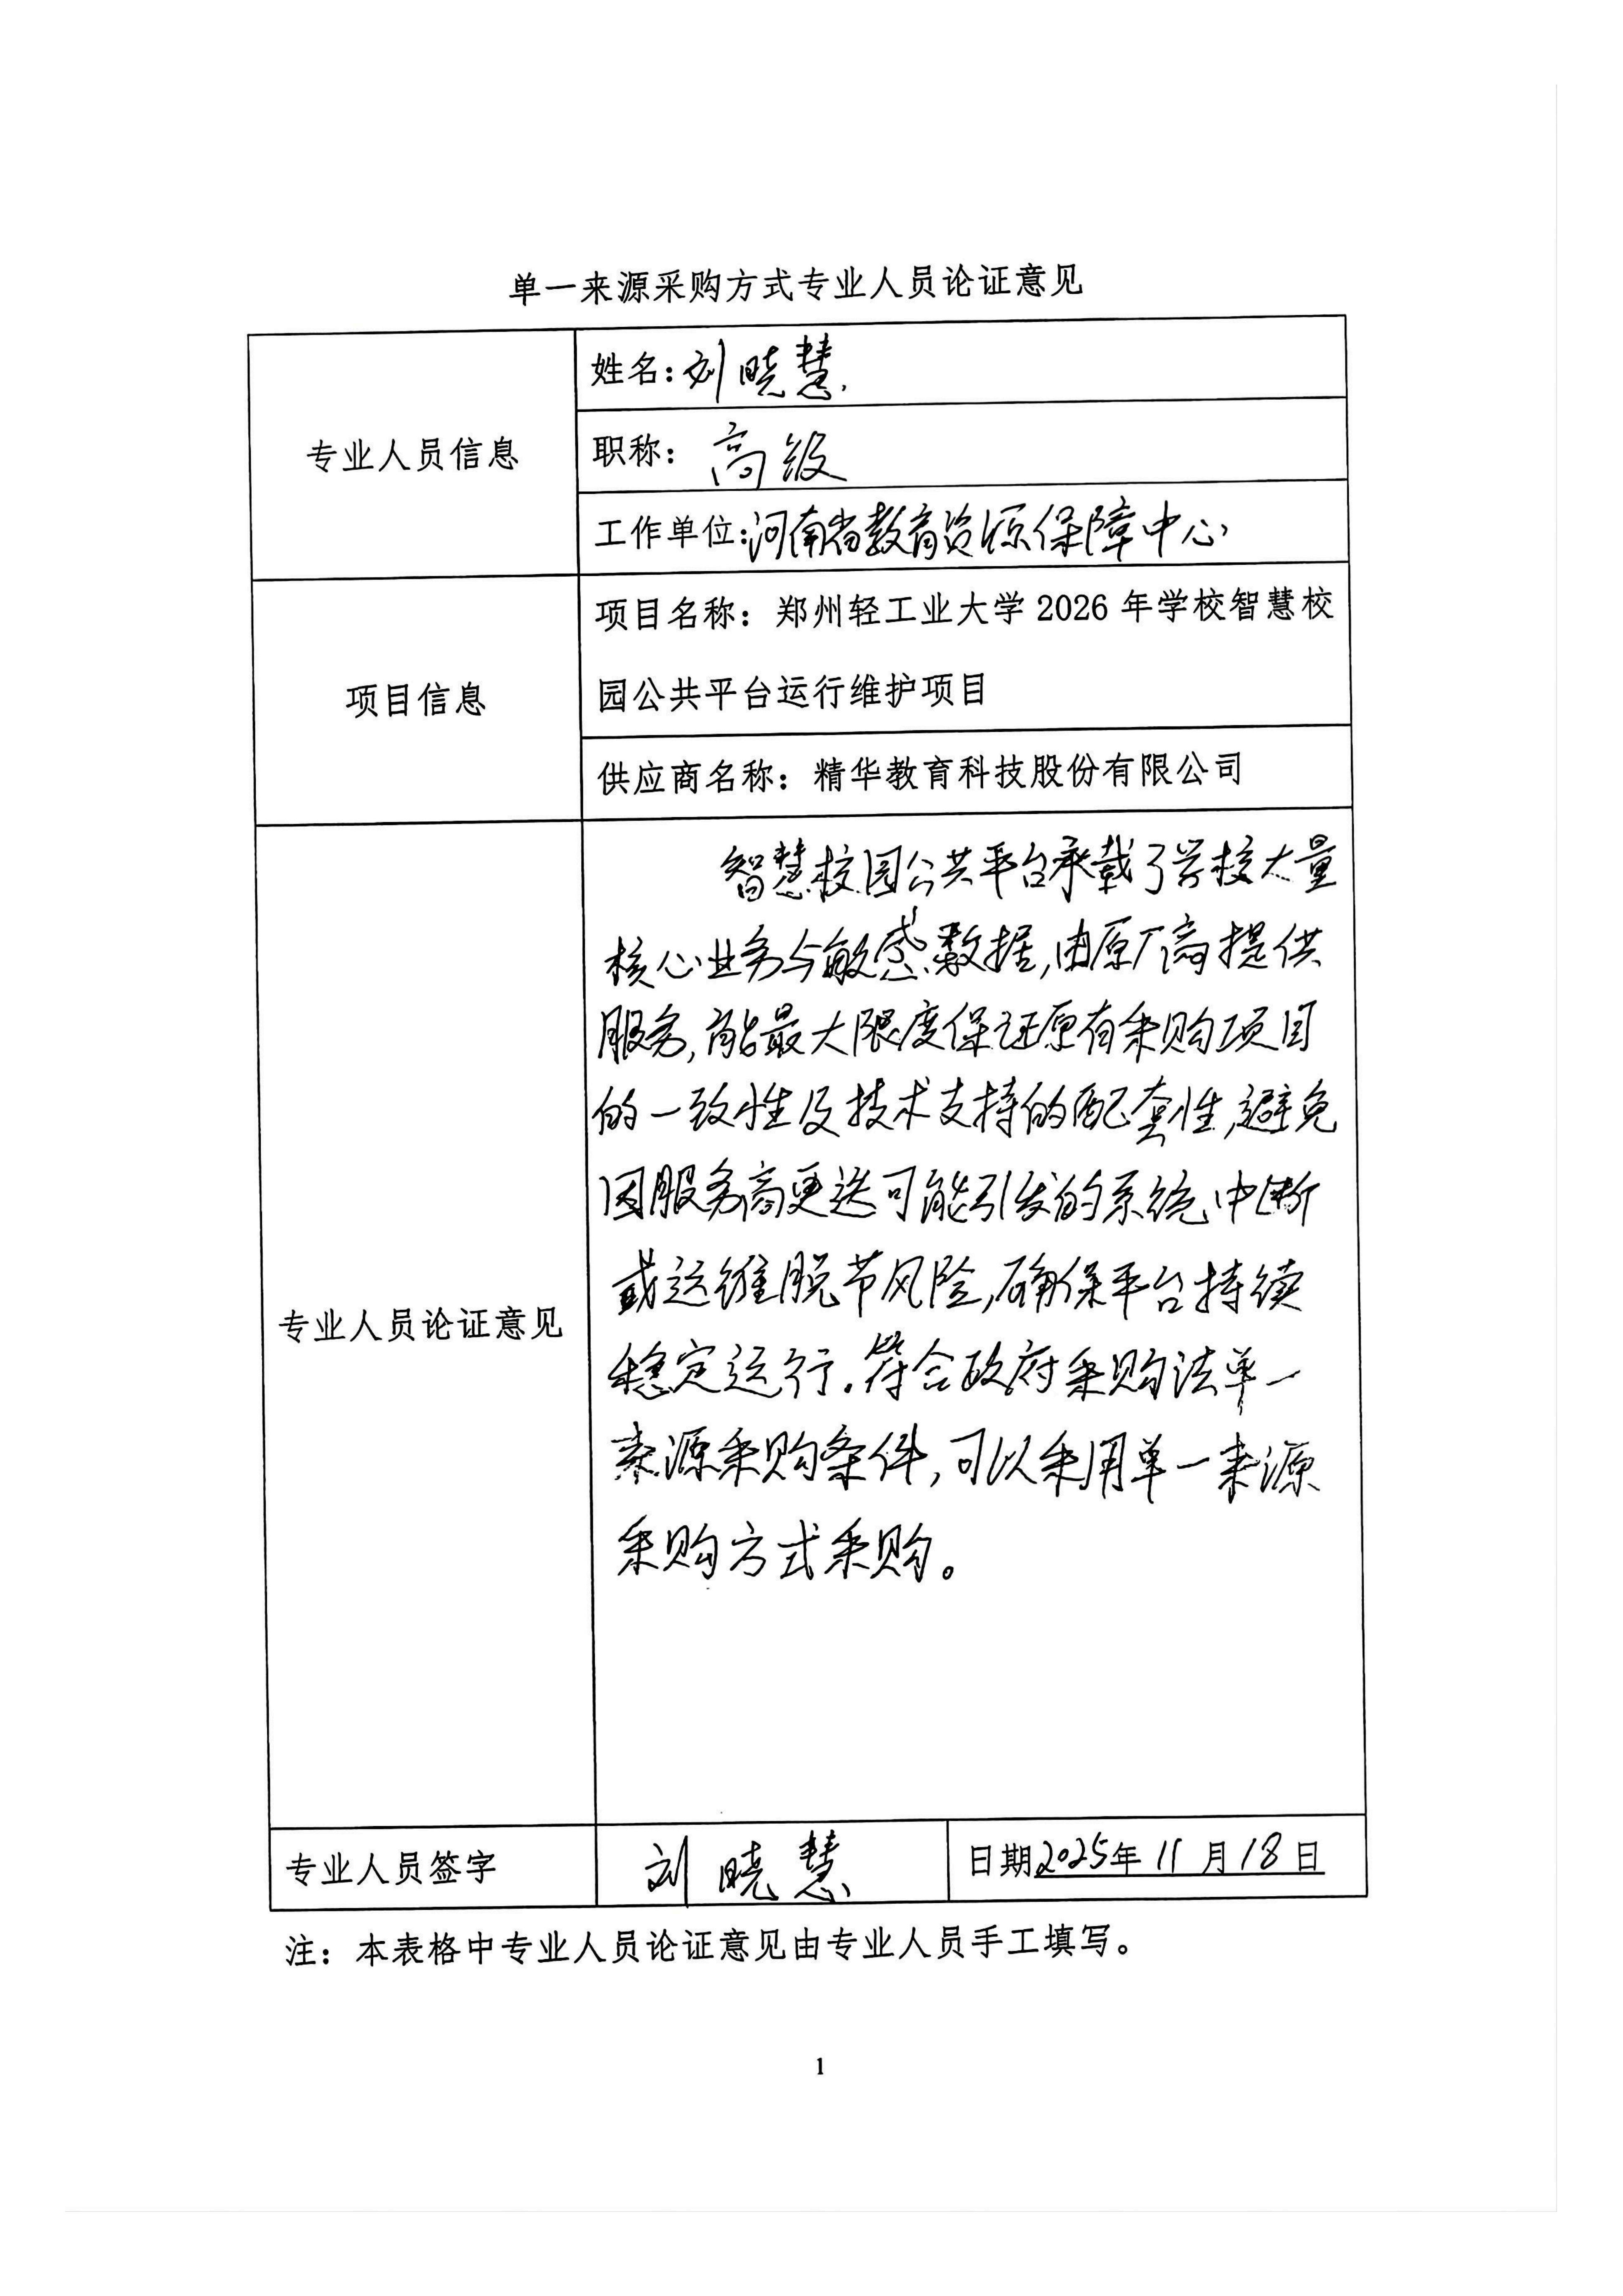 单一来源采购方式专业人员论证意见
专业人员信息
姓名：刘晓慧
职称：高级
工作单位：河南省教育资源保障中心
项目信息
项目名称：郑州轻工业大学2026年学校智慧校
园公共平台运行维护项目
供应商名称：精华教育科技股份有限公司
专业人员论证意见
智慧校园公共平台承载了学校大量
核心业务与敏感数据,由原厂商提供
服务,能最大限度保证原有采购项目
的一致性及技术支持的配套性,避免
因服务商更迭可能引发的系统中断
或运维脱节风险,确保平台持续
稳定运行.符合政府采购法单一
来源采购条件,可以采用单一来源
采购方式采购。
专业人员签字
刘晓慧
日期2025年11月18日
注：本表格中专业人员论证意见由专业人员手工填写。
1